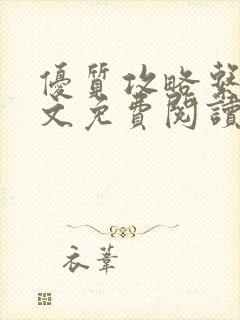 優質攻略繫
文免費閱讀
衣葦